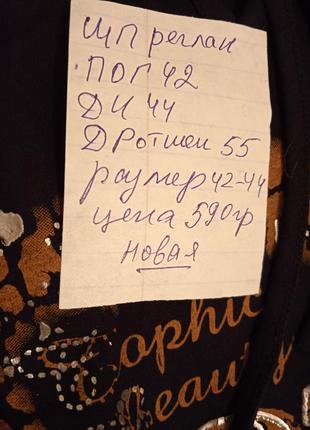 ШП реглан
ПОГ 42
ДИ 44
Д Рот шеи 55
размер 42-44
цена 590гр
новая
Sophic
Beauty